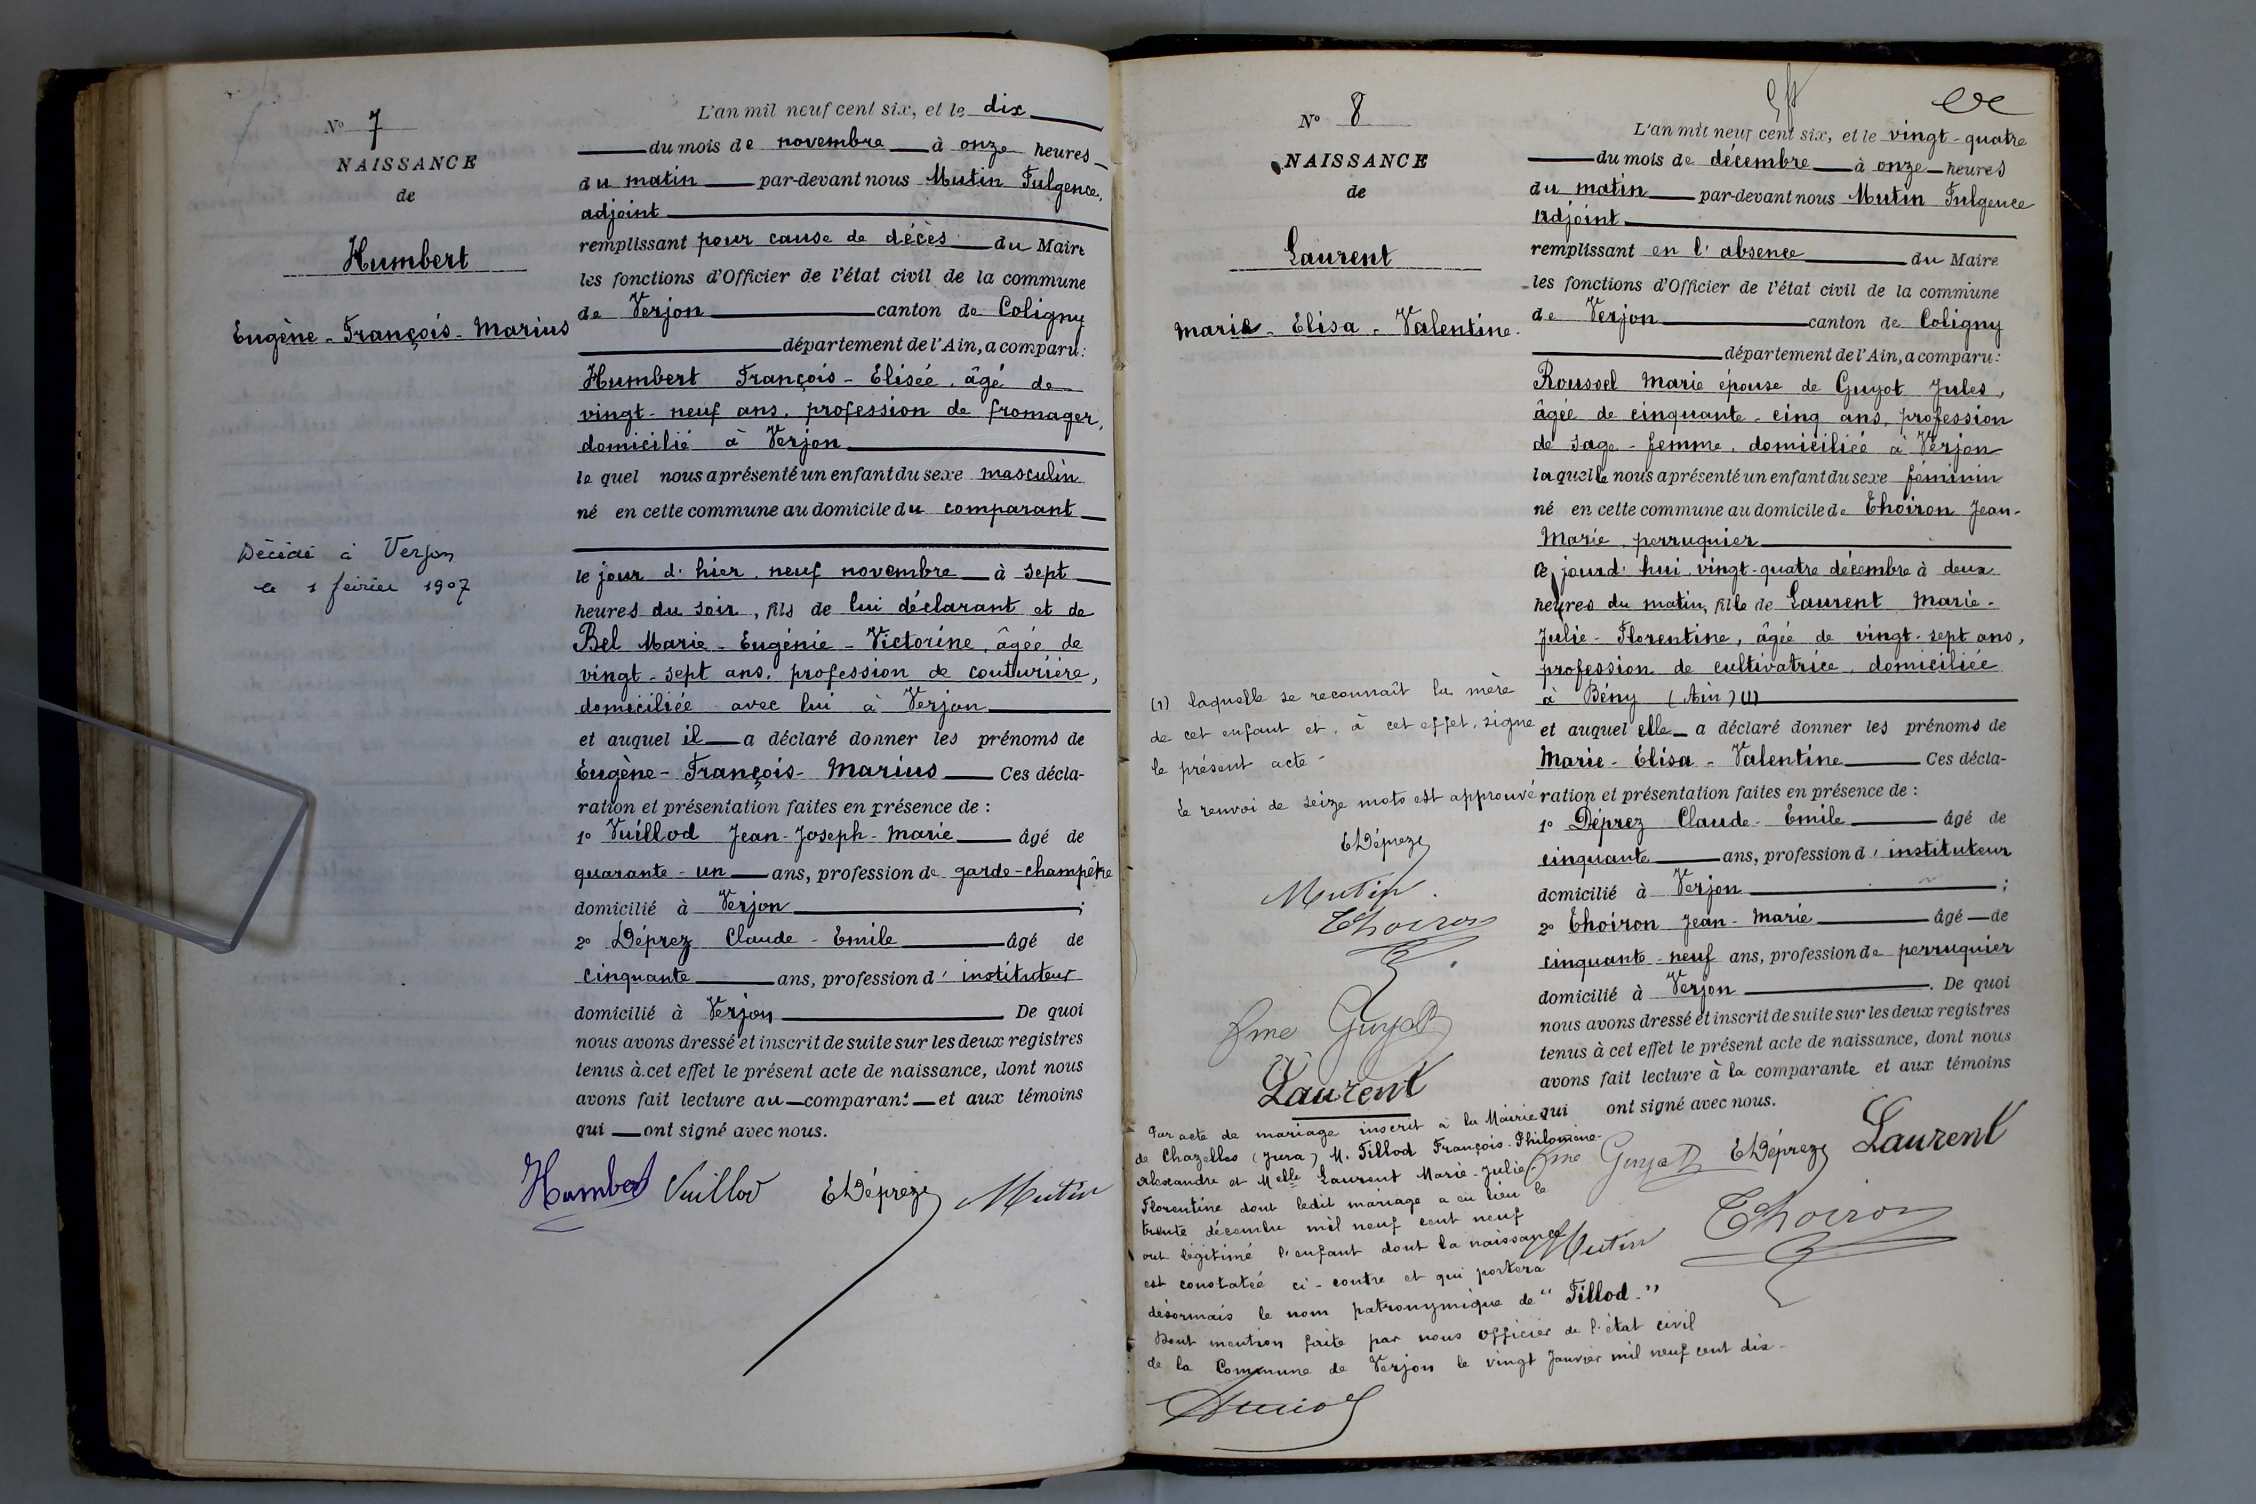 Nº 7
NAISSANCE
de
Humbert
Eugène - François - Marius
Décédé à Verjon
le 1 février 1907
L'an mil neuf cent six, et le dix
du mois de novembre à onze heures
du matin par-devant nous Mutin Fulgence,
adjoint
remplissant pour cause de décès du Maire
les fonctions d'Officier de l'état civil de la commune
de Verjon canton de Coligny
département de l'Ain, a comparu :
Humbert François - Elisée, âgé de
vingt - neuf ans, profession de fromager,
domicilié à Verjon
le quel nous a présenté un enfant du sexe masculin
né en cette commune au domicile du comparant
le jour d'hier, neuf novembre à sept
heures du soir, fils de lui déclarant et de
Bel Marie - Eugénie - Victorine, âgée de
vingt - sept ans, profession de couturière,
domiciliée avec lui à Verjon
et auquel il a déclaré donner les prénoms de
Eugène - François - Marius Ces décla-
ration et présentation faites en présence de :
1º Vuillod Jean - Joseph - Marie âgé de
quarante - un ans, profession de garde-champêtre
domicilié à Verjon ;
2º Déprez Claude - Emile âgé de
cinquante ans, profession d'instituteur
domicilié à Verjon De quoi
nous avons dressé et inscrit de suite sur les deux registres
tenus à cet effet le présent acte de naissance, dont nous
avons fait lecture au comparant et aux témoins
qui ont signé avec nous.
Humbert Vuillod EDéprez Mutin
Nº 8
NAISSANCE
de
Laurent
Marie - Elisa - Valentine.
(1) laquelle se reconnaît la mère
de cet enfant et, à cet effet, signe
le présent acte -
Le renvoi de seize mots est approuvé
EDéprez
Mutin
Thoiron
Fme Guyot
Laurent
Par acte de mariage inscrit à la Mairie
de Chazelles (Jura) M. Fillod François - Philomène -
Alexandre et Melle Laurent Marie - Julie -
Florentine dont ledit mariage a eu lieu le
trente décembre mil neuf cent neuf
ont légitimé l'enfant dont la naissance
est constatée ci - contre et qui portera
désormais le nom patronymique de "Fillod."
Dont mention faite par nous officier de l'état civil
de la Commune de Verjon le vingt Janvier mil neuf cent dix -
L'an mil neuf cent six, et le vingt - quatre
du mois de décembre à onze heures
du matin par-devant nous Mutin Fulgence
adjoint
remplissant en l'absence du Maire
les fonctions d'Officier de l'état civil de la commune
de Verjon canton de Coligny
département de l'Ain, a comparu :
Roussel Marie épouse de Guyot Jules,
âgée de cinquante - cinq ans, profession
de sage - femme, domiciliée à Verjon
laquelle nous a présenté un enfant du sexe féminin
né en cette commune au domicile de Thoiron Jean -
Marie, perruquier
ce jourd'hui, vingt - quatre décembre à deux
heures du matin, fille de Laurent Marie -
Julie - Florentine, âgée de vingt - sept ans,
profession de cultivatrice, domiciliée
à Bény (Ain) (1)
et auquel elle a déclaré donner les prénoms de
Marie - Elisa - Valentine Ces décla-
ration et présentation faites en présence de :
1º Déprez Claude - Emile âgé de
cinquante ans, profession d'instituteur
domicilié à Verjon ;
2º Thoiron Jean - Marie âgé de
cinquante - neuf ans, profession de perruquier
domicilié à Verjon . De quoi
nous avons dressé et inscrit de suite sur les deux registres
tenus à cet effet le présent acte de naissance, dont nous
avons fait lecture à la comparante et aux témoins
qui ont signé avec nous.
Fme Guyot EDéprez Laurent
Mutin Thoiron